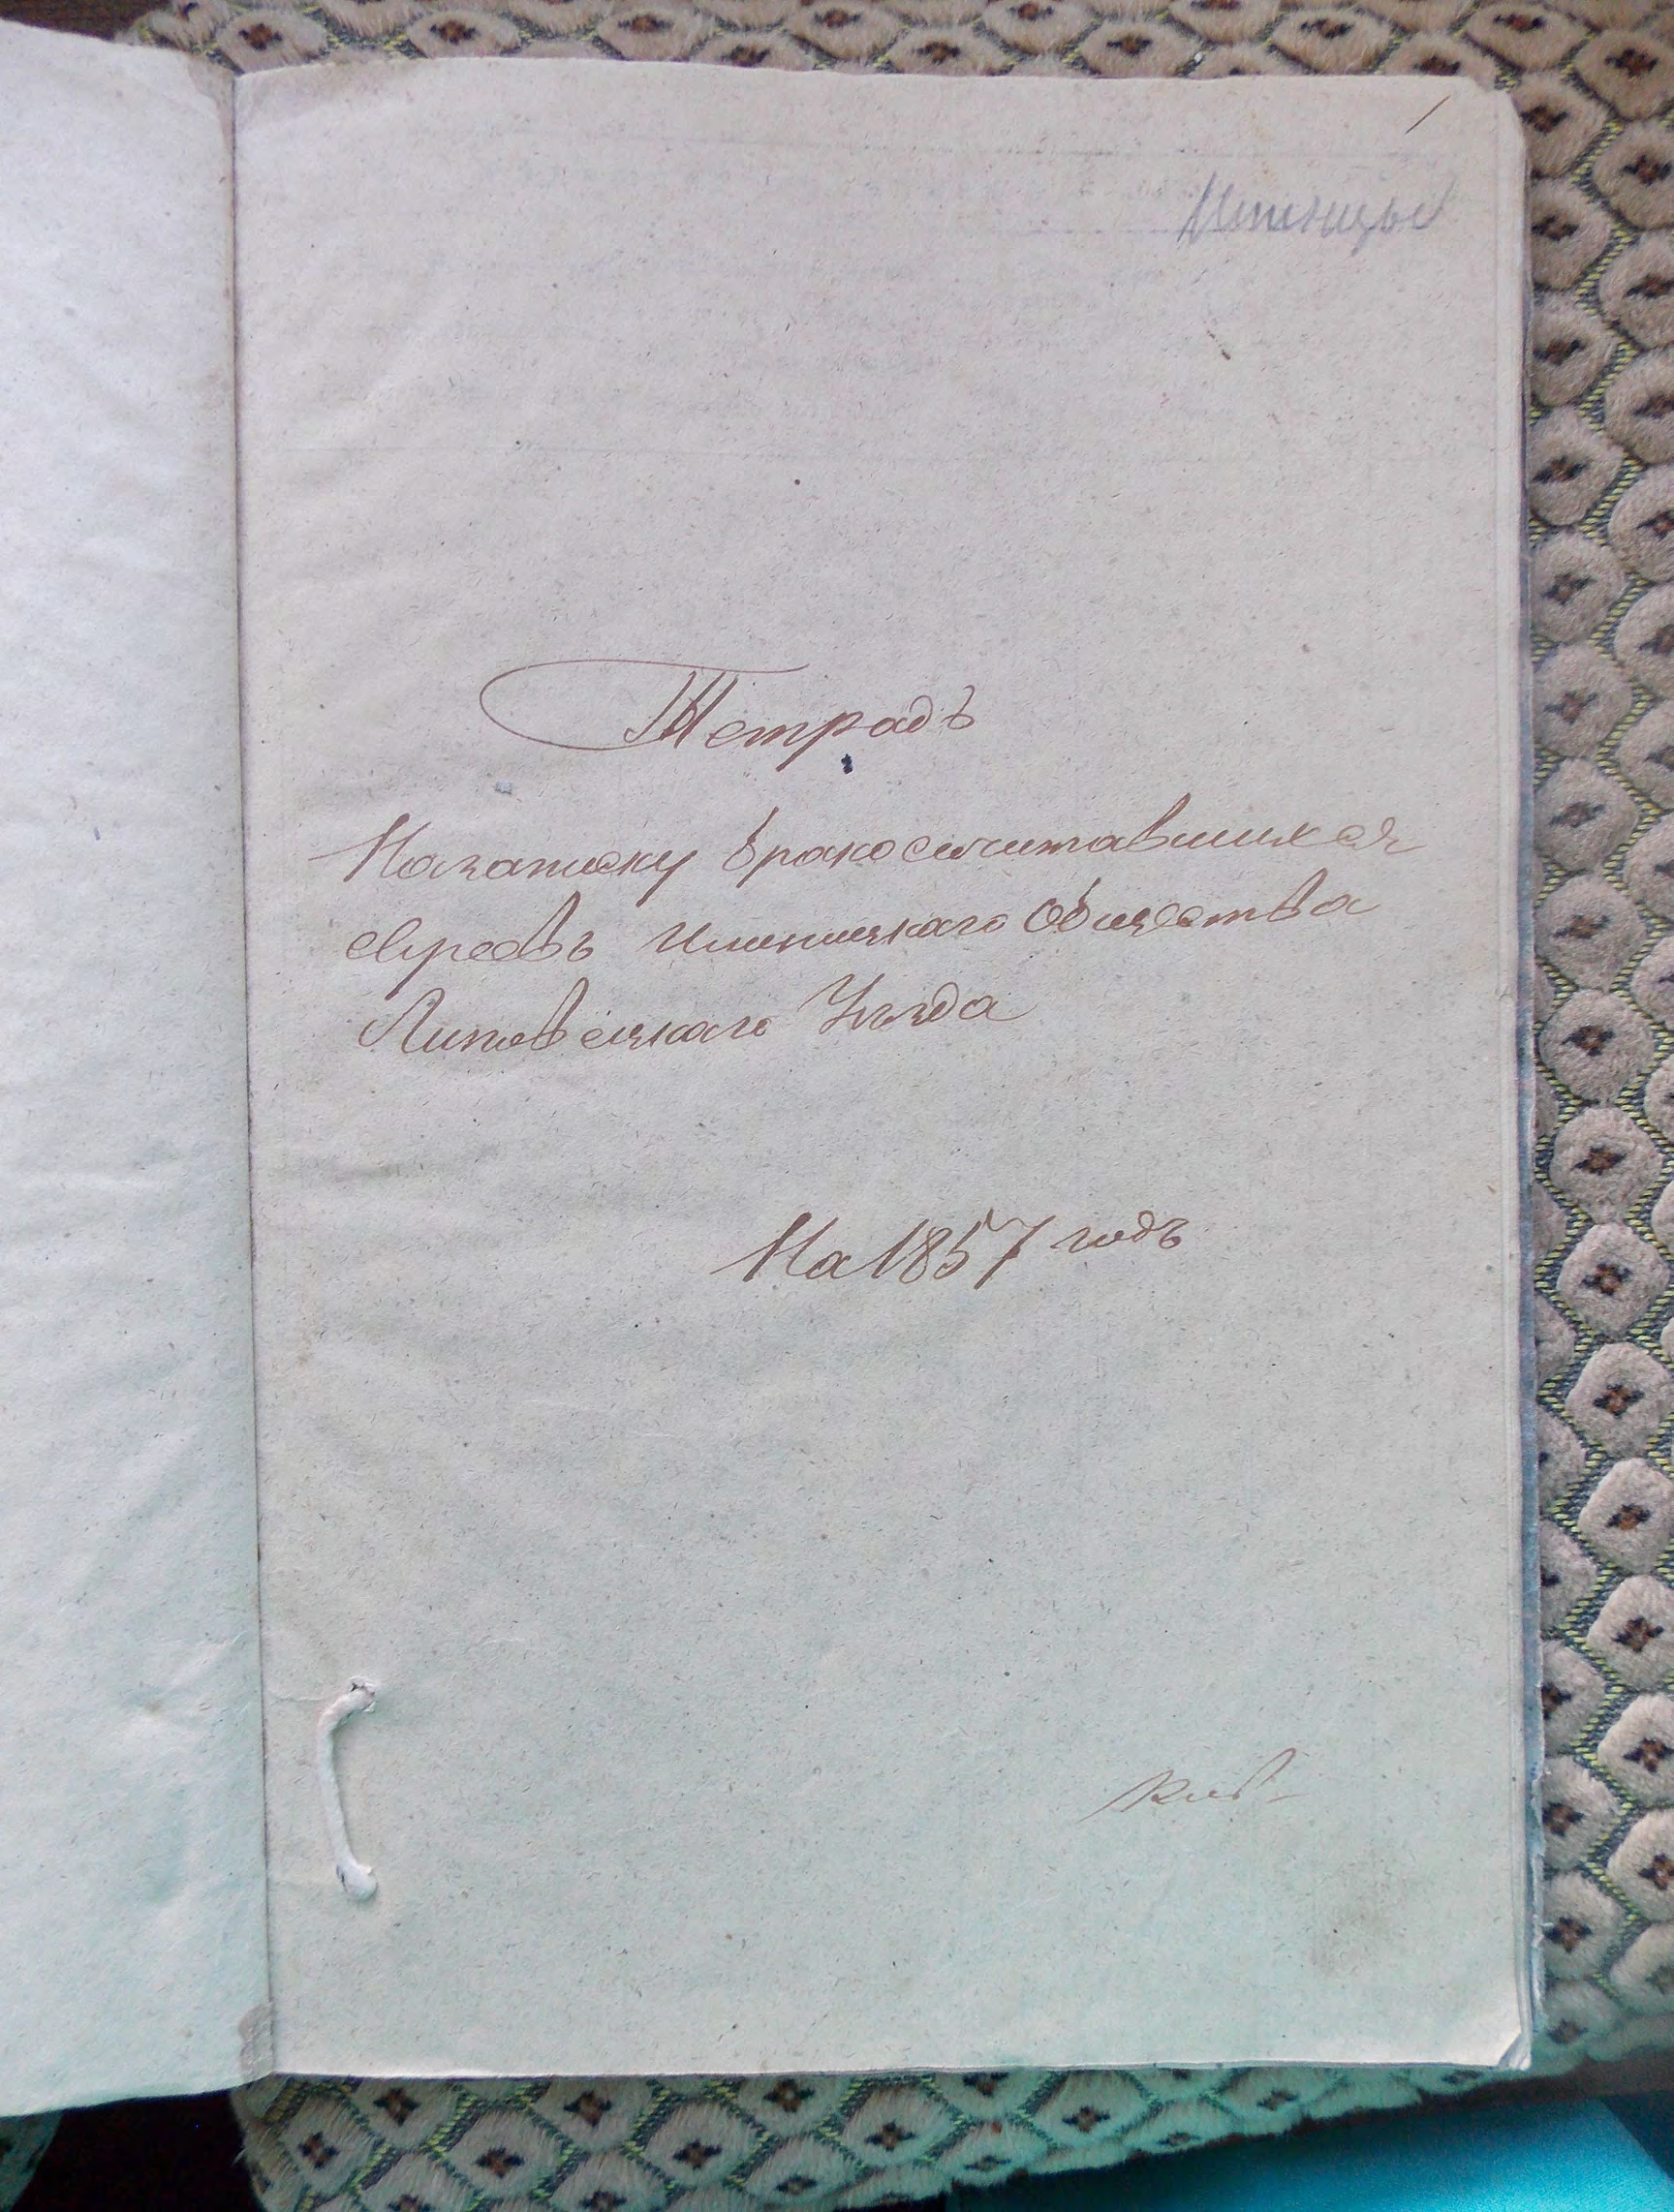 1
Тетрадь
На записку бракосочитавшихся
Евреевъ Илинецкаго Общества
Липовецкаго Уезда
На 1857 годъ